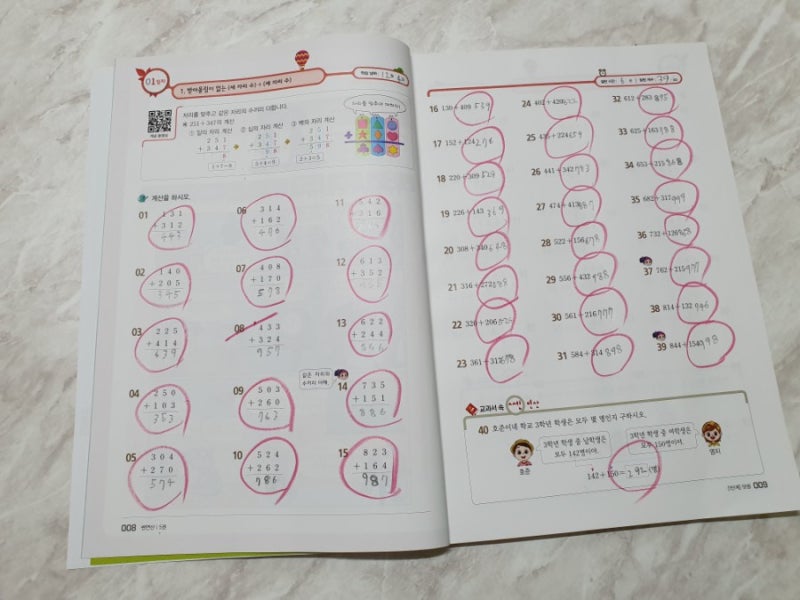 01 일차
1. 받아올림이 없는 (세 자리 수) + (세 자리 수)
자리를 맞추고 같은 자리의 수끼리 더합니다.
예 251 + 347의 계산
① 일의 자리 계산 ② 십의 자리 계산 ③ 백의 자리 계산
2 5 1 2 5 1 2 5 1
+ 3 4 7 + 3 4 7 + 3 4 7
8 9 8 5 9 8
1+7=8 5+4=9 2+3=5
계산을 하시오.
01
1 3 1
+ 3 1 2
4 4 3
02
1 4 0
+ 2 0 5
3 4 5
03
2 2 5
+ 4 1 4
6 3 9
04
2 5 0
+ 1 0 3
3 5 3
05
3 0 4
+ 2 7 0
5 7 4
06
3 1 4
+ 1 6 2
4 7 6
07
4 0 8
+ 1 7 0
5 7 8
08
4 3 3
+ 3 2 4
9 5 7
09
5 0 3
+ 2 6 0
7 6 3
10
5 2 4
+ 2 6 2
7 8 6
11
5 4 2
+ 3 1 6
12
6 1 3
+ 3 5 2
13
6 2 2
+ 2 4 4
같은 자리의
수끼리 더해.
14
7 3 5
+ 1 5 1
8 8 6
15
8 2 3
+ 1 6 4
9 8 7
008
16 130 + 409
17 152 + 124 276
18 220 + 309 529
19 226 + 143 369
20 308 + 340 648
21 316 + 272
22 320 + 206
23 361 + 317 678
24 402 + 420
25 435 + 224 659
26 441 + 342 783
27 474 + 413 887
28 522 + 156 678
29 556 + 432 988
30 561 + 216 777
31 584 + 314 898
32 612 + 283 895
33 625 + 163 788
34 653 + 215 868
35 682 + 317 999
36 732 + 126
37 762 + 215 977
38 814 + 132 946
39 844 + 154 998
교과서 속
40 호준이네 학교 3학년 학생은 모두 몇 명인지 구하시오.
3학년 학생 중 남학생은
모두 142명이야.
3학년 학생 중 여학생은
모두 150명이야.
호준
명지
142 + 150 = 292 (명)
009